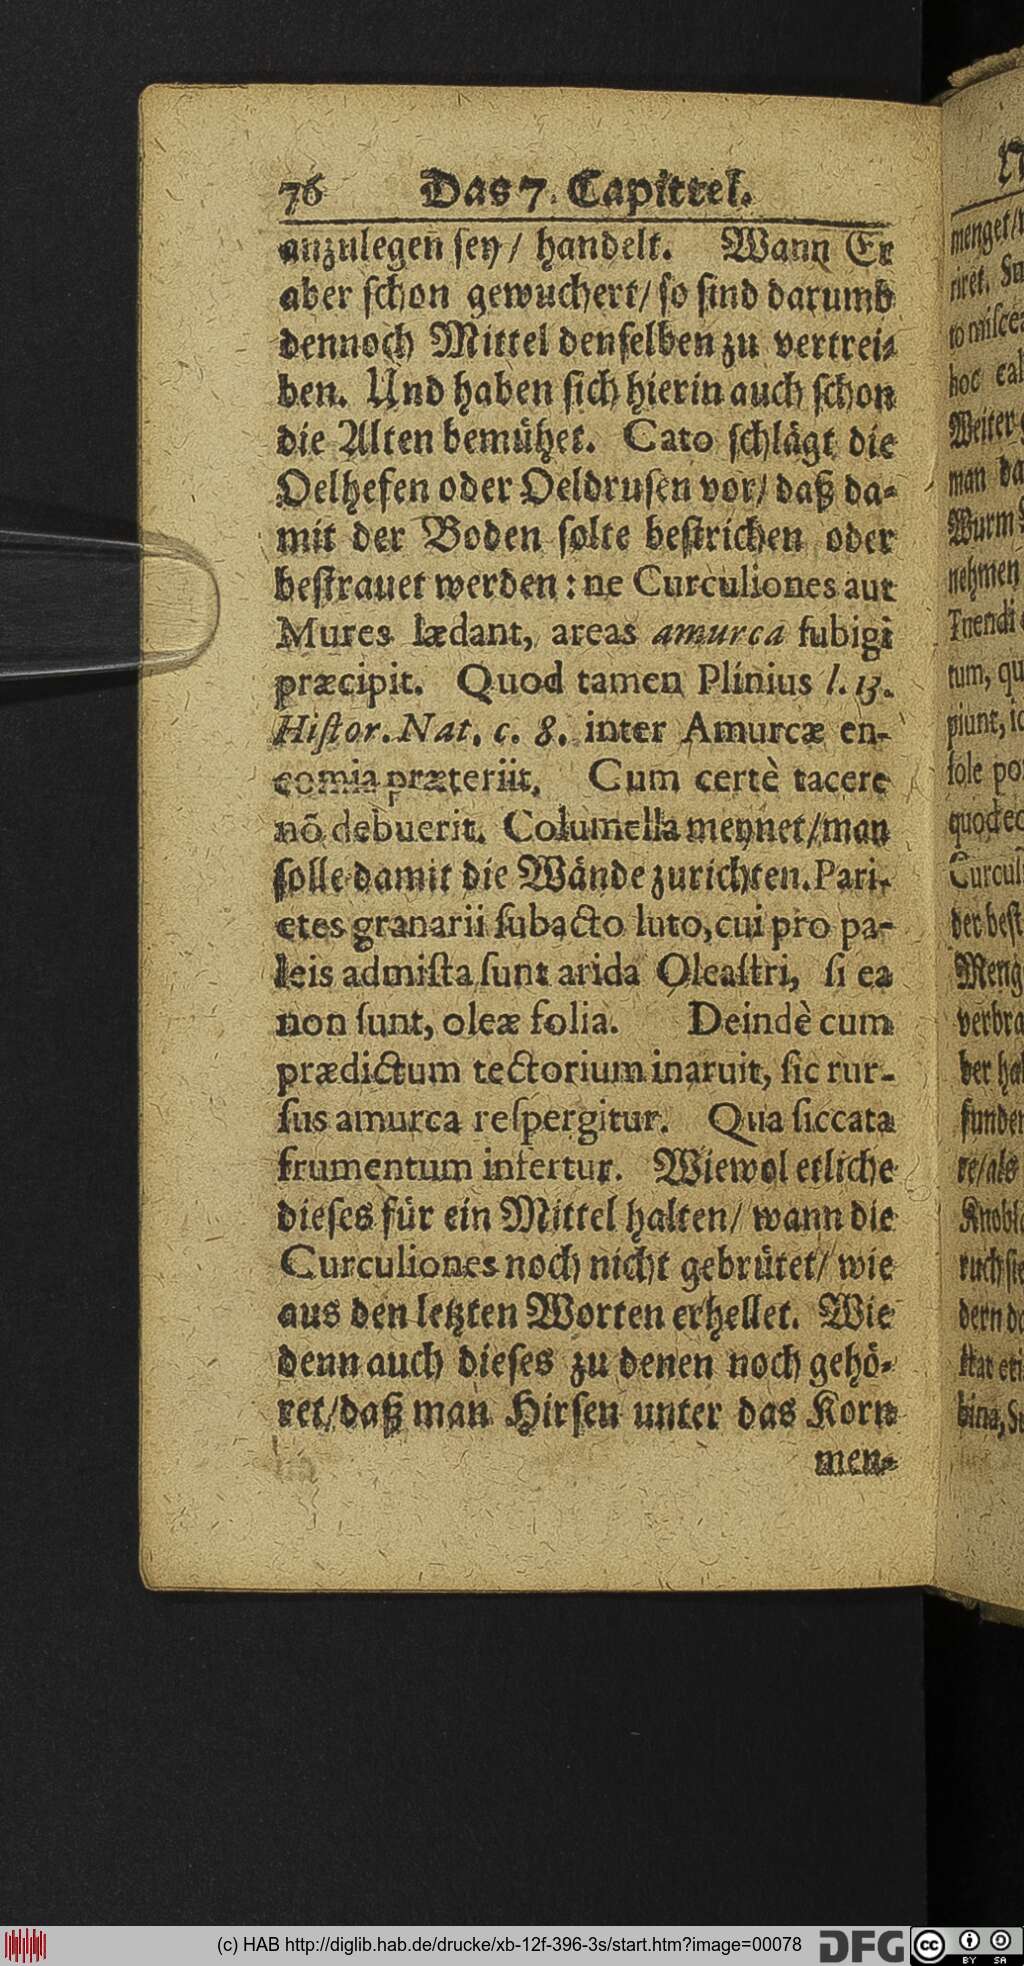 76 Das 7. Capittel.
anzulegen sey / handelt. Wann Er
aber schon gewuchert / so sind darumb
dennoch Mittel denselben zu vertrei-
ben. Und haben sich hierin auch schon
die Alten bemühet. Cato schlägt die
Oelhefen oder Oeldrusen vor / daß da-
mit der Boden solte bestrichen oder
bestrauet werden : ne Curculiones aut
Mures lædant, areas amurca subigi
præcipit. Quod tamen Plinius l. 13.
Histor. Nat. c. 8. inter Amurcæ en-
comia præteriit. Cum certè tacere
nō debuerit. Columella meynet / man
solle damit die Wände zurichten. Pari-
etes granarii subacto luto, cui pro pa-
leis admista sunt arida Oleastri, si ea
non sunt, oleæ folia. Deindè cum
prædictum tectorium inaruit, sic rur-
sus amurca respergitur. Qua siccata
frumentum infertur. Wiewol etliche
dieses für ein Mittel halten / wann die
Curculiones noch nicht gebrütet / wie
aus den letzten Worten erhellet. Wie
denn auch dieses zu denen noch gehö-
ret / daß man Hirsen unter das Korn
men-
menget /
riret. Su
to misce
hoc cal
Weiter
man da
Wurm
nehmen
Tuendi
tum, qu
piunt, ic
sole po
quod ec
Curculi
der best
Meng
verbra
ber hal
funden
re / als
Knobl
ruch sie
dern d
stat eti
bina, S
(c) HAB http://diglib.hab.de/drucke/xb-12f-396-3s/start.htm?image=00078
DFG
cc BY SA